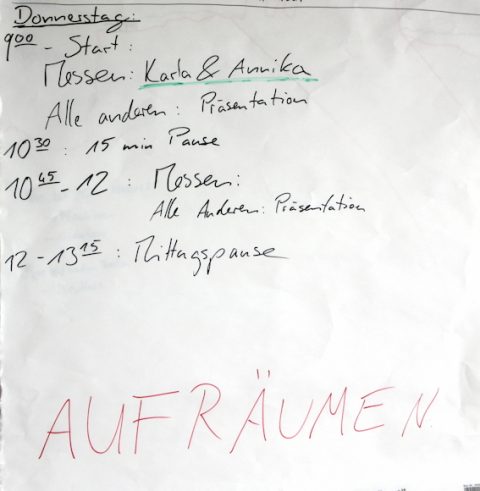 Donnerstag:
9⁰⁰ - Start:
Messen: Karla & Annika
Alle anderen: Präsentation
10³⁰: 15 min Pause
10⁴⁵-12: Messen:
Alle Anderen: Präsentation
12-13¹⁵: Mittagspause
AUFRÄUMEN